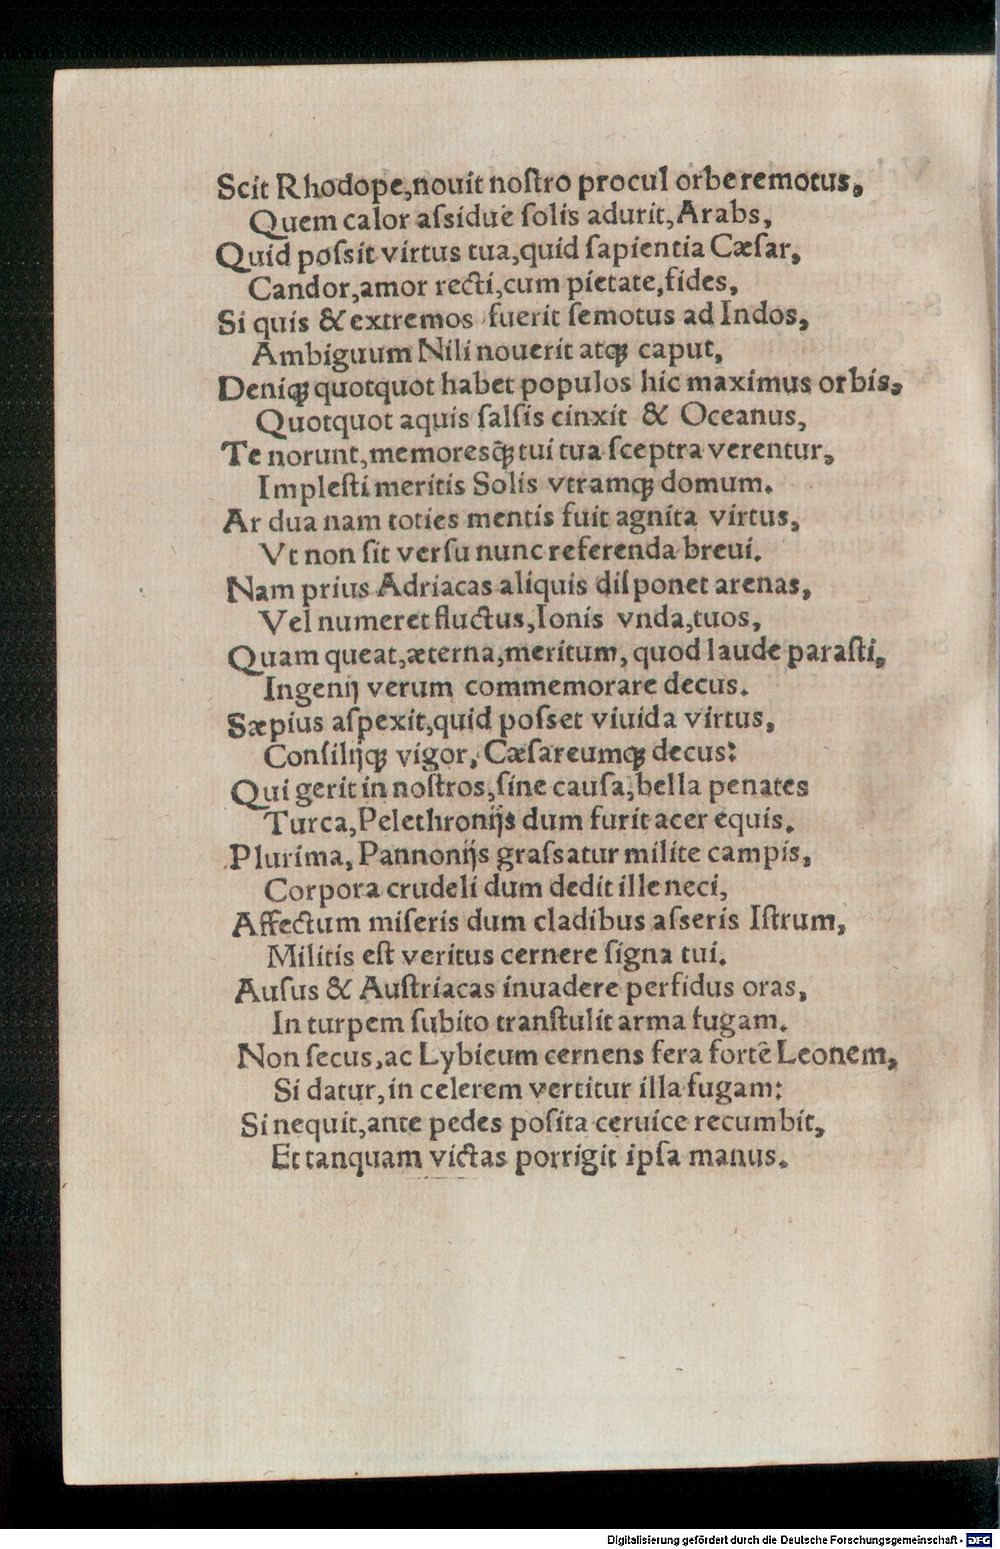 Scit Rhodope, nouit noſtro procul orbe remotus,
Quem calor aſsiduè ſolis adurit, Arabs,
Quid poſsit virtus tua, quid ſapientia Cæſar,
Candor, amor recti, cum pietate, fides,
Si quis & extremos fuerit ſemotus ad Indos,
Ambiguum Nili nouerit atq́ꝫ caput,
Deniqꝫ quotquot habet populos hic maximus orbis,
Quotquot aquis ſalſis cinxit & Oceanus,
Te norunt, memoresq́ꝫ tui tua ſceptra verentur,
Impleſti meritis Solis vtramqꝫ domum.
Ar dua nam toties mentis fuit agnita virtus,
Vt non ſit verſu nunc referenda breui.
Nam prius Adriacas aliquis diſponet arenas,
Vel numeret fluctus, Ionis vnda, tuos,
Quam queat, æterna, meritum, quod laude paraſti,
Ingenij verum commemorare decus.
Sæpius aſpexit, quid poſset viuida virtus,
Conſilijqꝫ vigor, Cæſareumqꝫ decus:
Qui gerit in noſtros, ſine cauſa, bella penates
Turca, Pelethronijs dum furit acer equis.
Plurima, Pannonijs graſsatur milite campis,
Corpora crudeli dum dedit ille neci,
Affectum miſeris dum cladibus aſseris Iſtrum,
Militis eſt veritus cernere ſigna tui.
Auſus & Auſtriacas inuadere perfidus oras,
In turpem ſubito tranſtulit arma fugam.
Non ſecus, ac Lybicum cernens fera fortè Leonem,
Si datur, in celerem vertitur illa fugam:
Si nequit, ante pedes poſita ceruice recumbit,
Et tanquam victas porrigit ipſa manus.
Digitalisierung gefördert durch die Deutsche Forschungsgemeinschaft - DFG